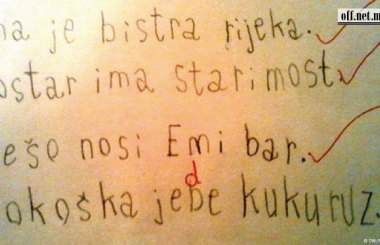 off.net.m
na je bistra rijeka.
ostar ima stari most.
ešo nosi Emi bar.
d
okoška jebe kukuruz.